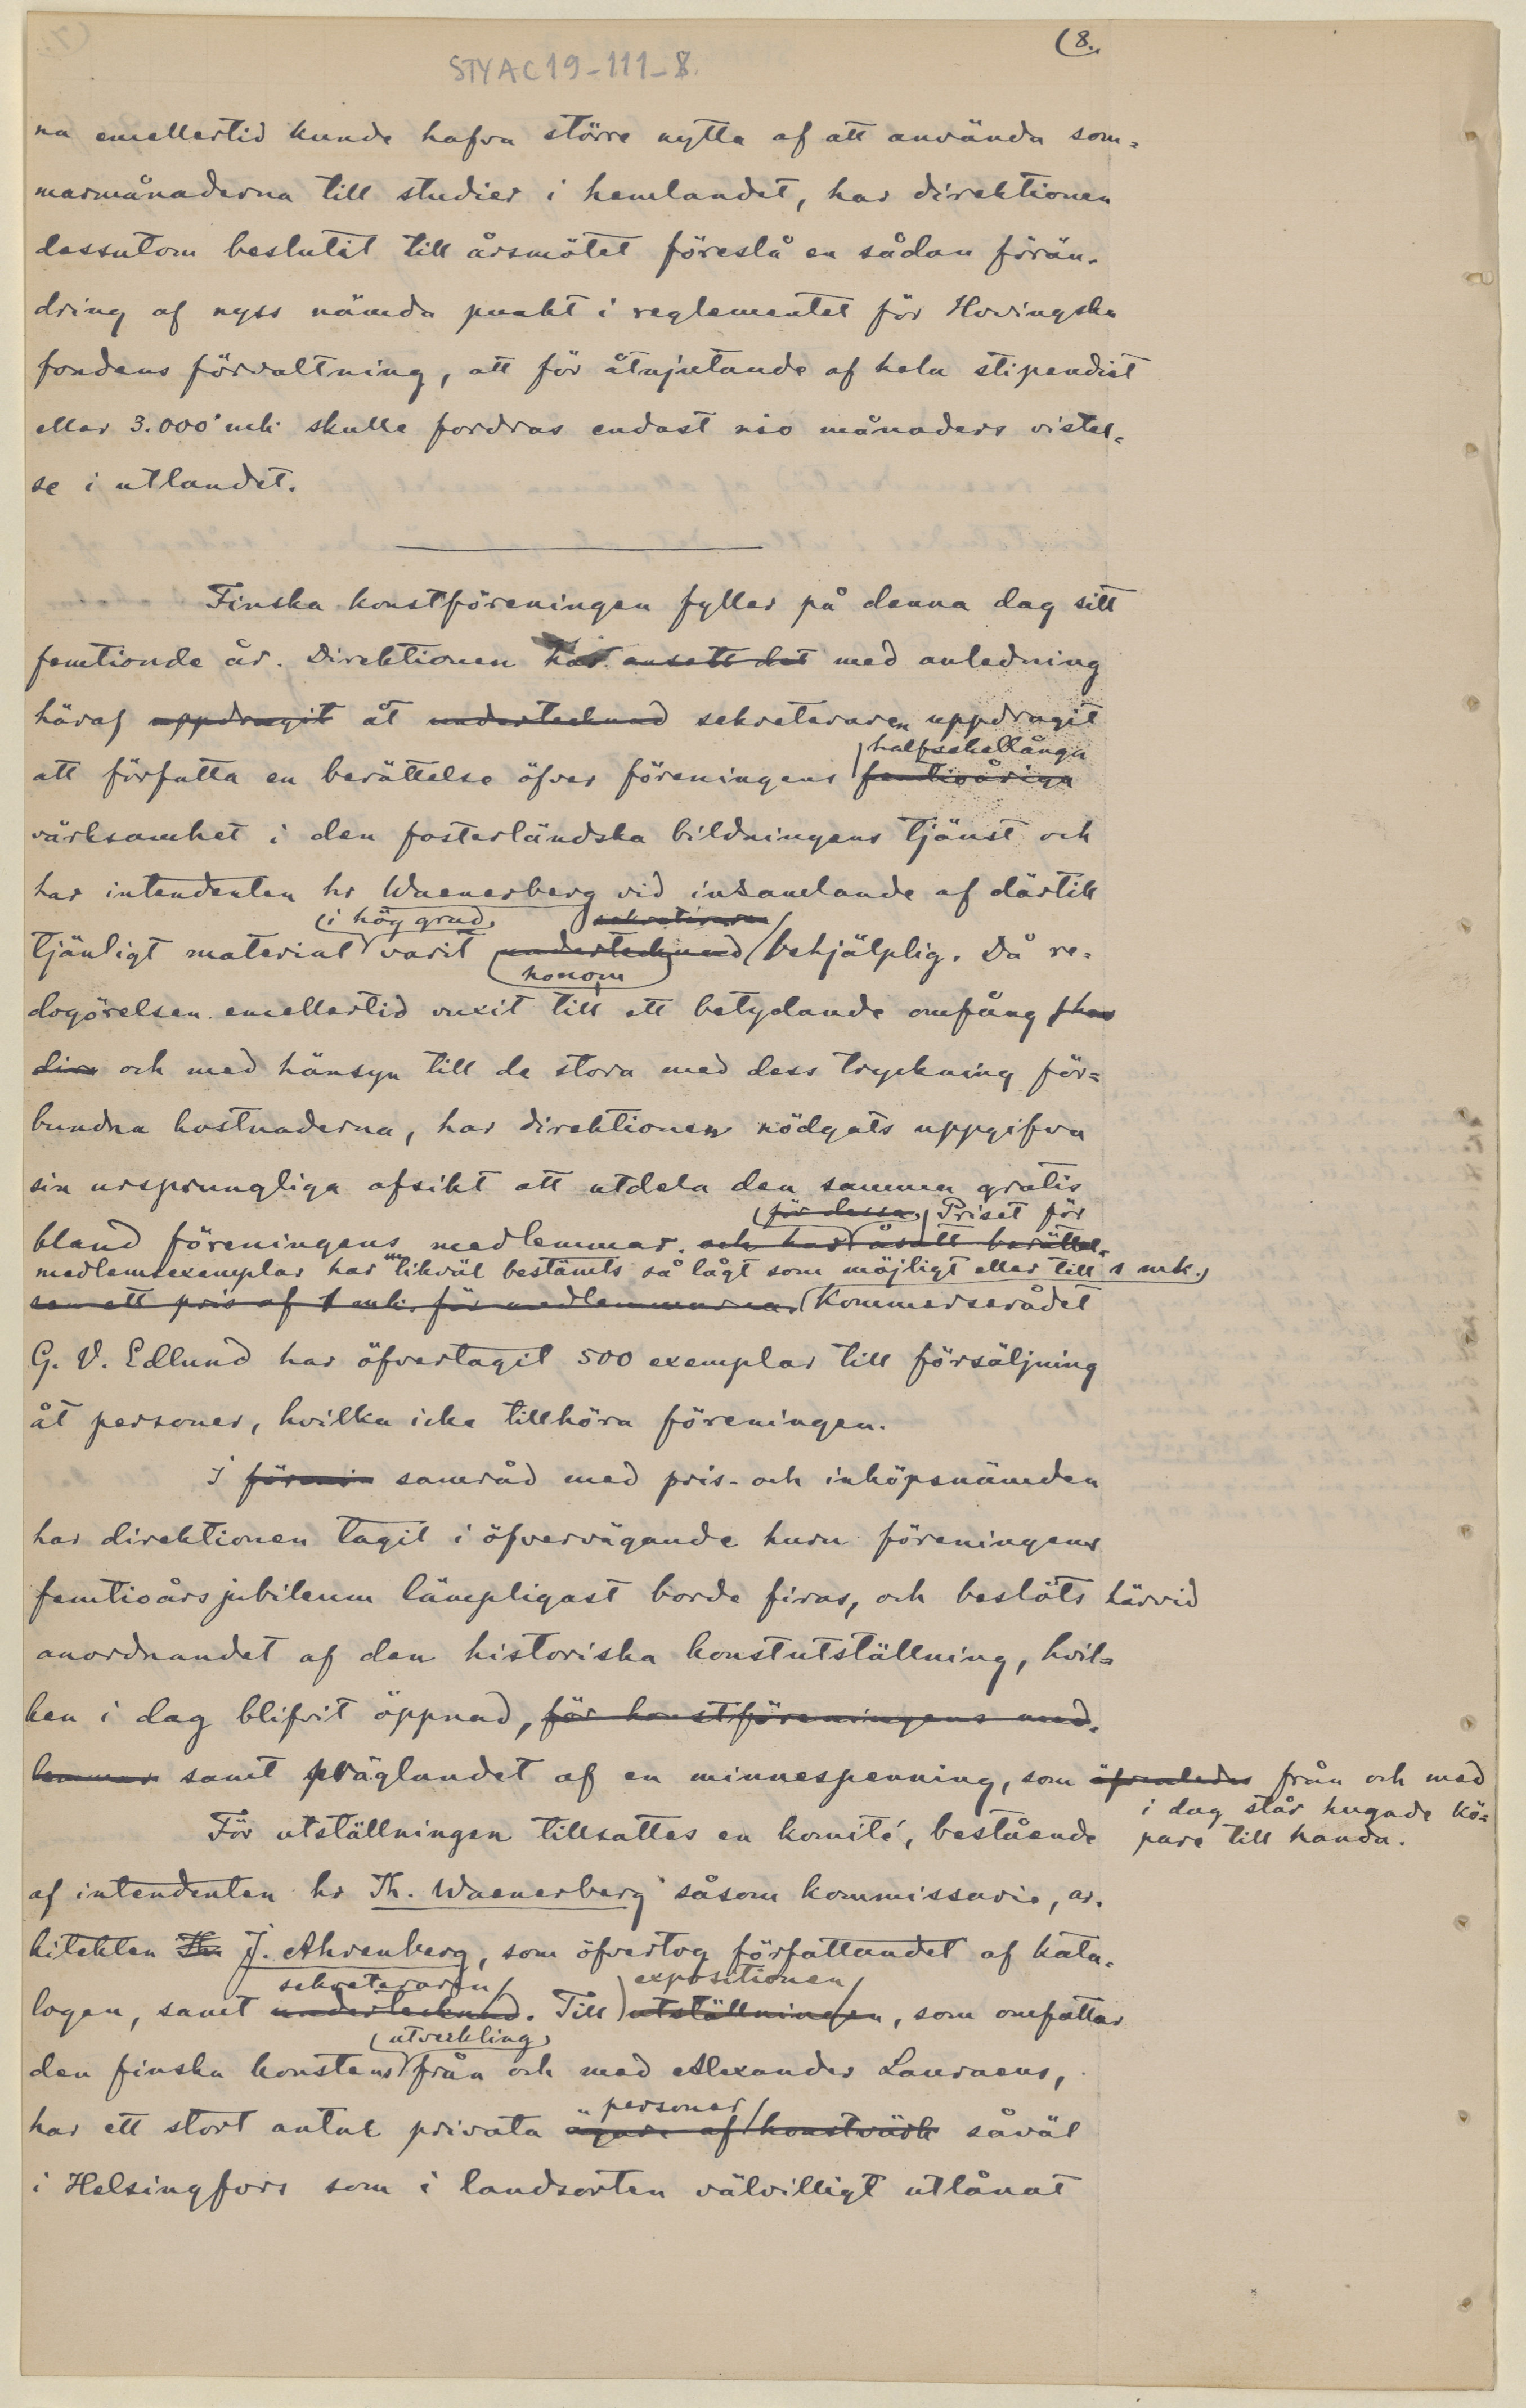 (8.
STYAC19-111-8.
na emellertid kunde hafva större nytta af att använda som=
marmånaderna till studier i hemlandet, har direktionen
dessutom beslutit till årsmötet föreslå en sådan förän-
dring af nyss nämda punkt i reglementet för Hovingska
fondens förvaltning, att för åtnjutande af hela stipendiet
eller 3.000 mk skulle fordras endast nio månaders vistel=
se i utlandet.
Finska konstföreningen fyller på denna dag sitt
femtionde år. Direktionen har ansett det med anledning
häraf uppdragit åt undertecknad sekreteraren uppdragit
halfsekellånga
att författa en berättelse öfver föreningens femtioåriga
värksamhet i den fosterländska bildningens tjänst och
har intendenten hr Waenerberg vid insamlande af därtill
i hög grad sekreteraren
tjänligt material varit undertecknad behjälplig. Då re=
honom
dogörelsen emellertid vuxit till ett betydande omfång har
dire och med hänsyn till de stora med dess tryckning för=
bundna kostnaderna, har direktionen nödgats uppgifva
sin ursprungliga afsikt att utdela den samma gratis
för dessa Priset för
bland föreningens medlemmar. och har åsatt berättel-
medlemsexemplar har likväl bestämts så lågt som möjligt eller till 1 mk.
sen ett pris af 1 mk för medlemmarna. Kommerserådet
G. V. Edlund har öfvertagit 500 exemplar till försäljning
åt personer, hvilka icke tillhöra föreningen.
I förenin samråd med pris- och inköpsnämden
har direktionen tagit i öfvervägande huru föreningens
femtioårsjubileum lämpligast borde firas, och beslöts härvid
anordnandet af den historiska konstutställning, hvil=
ken i dag blifvit öppnad, för konstföreningens med-
lemmar samt präglandet af en minnespenning, som äfvenledes från och med
i dag står hugade kö=
pare till handa.
För utställningen tillsattes en komité, bestående
af intendenten hr Th. Waenerberg såsom kommissarie, ar-
kitekten Th. J. Ahrenberg, som öfvertog författandet af kata-
sekreteraren expositionen
logen, samt undertecknad. Till utställningen, som omfattar
utveckling
den finska konstens från och med Alexander Lauraeus,
personer
har ett stort antal privata ägare af konstvärk såväl
i Helsingfors som i landsorten välvilligt utlånat